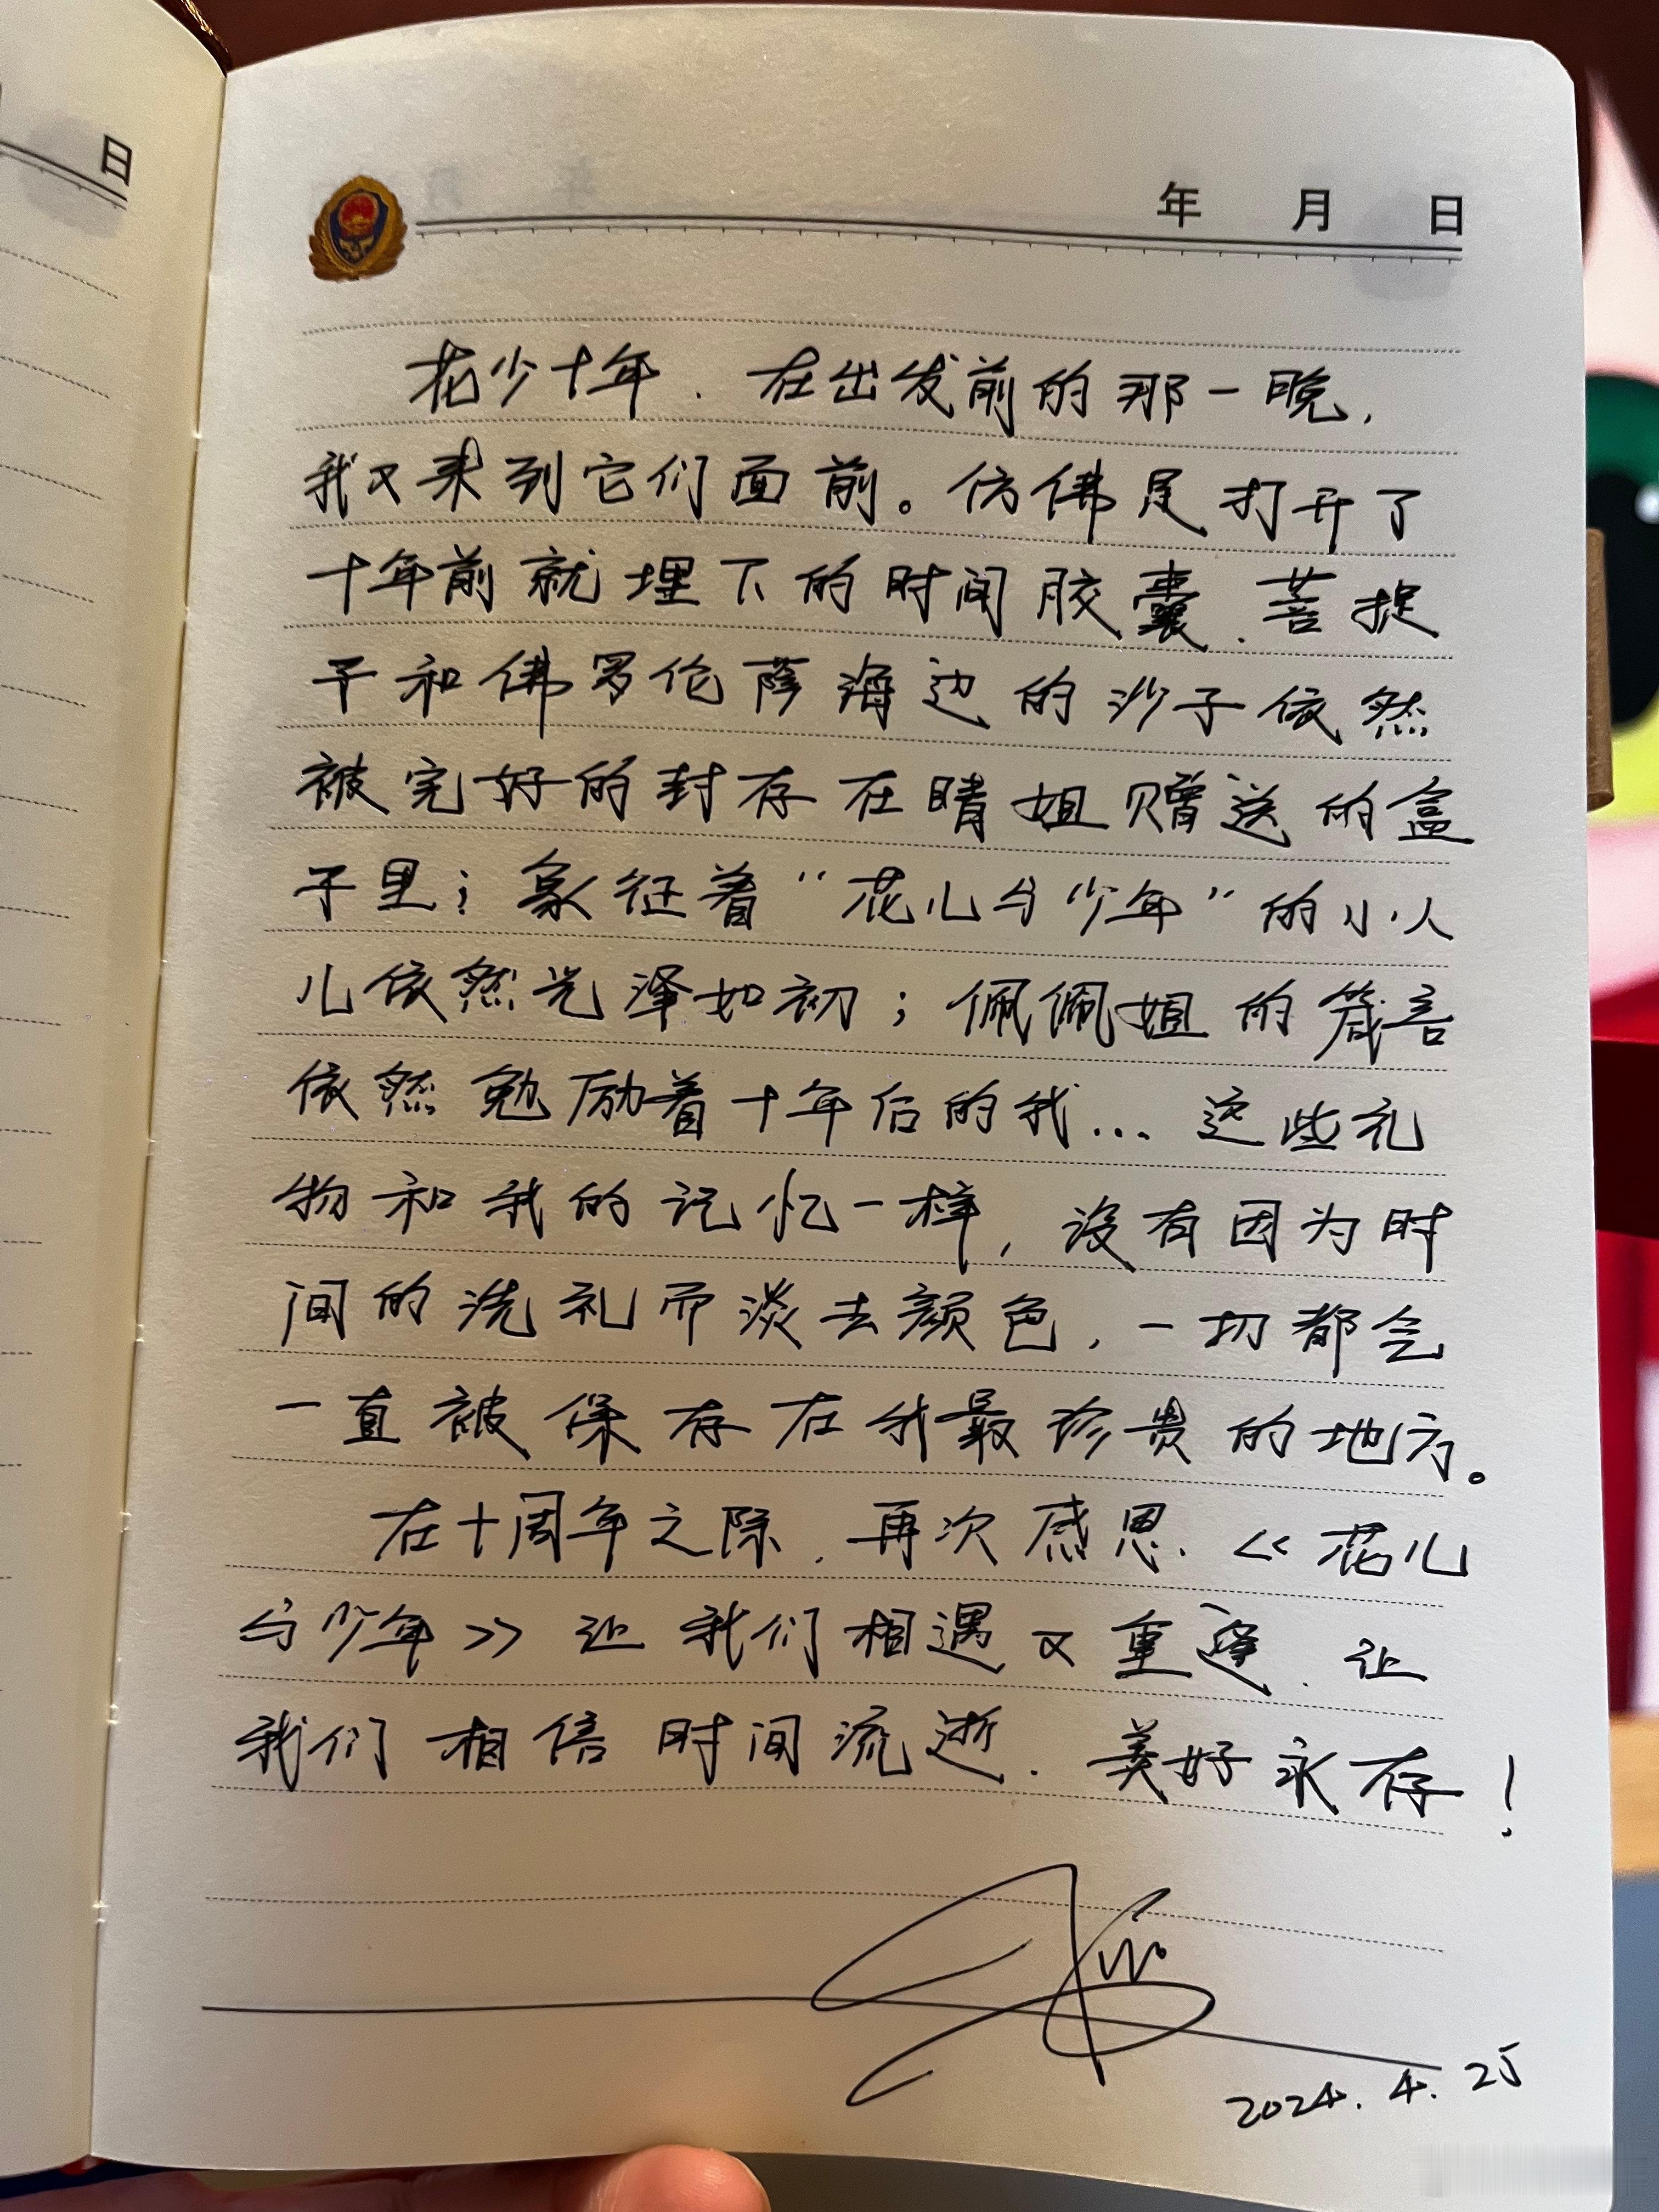 日
年 月 日
花少十年，在出发前的那一晚，
我又来到它们面前。仿佛是打开了
十年前就埋下的时间胶囊，菩提
子和佛罗伦萨海边的沙子依然
被完好的封存在晴姐赠送的盒
子里；象征着“花儿与少年”的小人
儿依然光泽如初；佩佩姐的箴言
依然勉励着十年后的我…这些礼
物和我的记忆一样，没有因为时
间的洗礼而淡去颜色，一切都会
一直被保存在我最珍贵的地方。
在十周年之际，再次感恩《花儿
与少年》让我们相遇又重逢，让
我们相信时间流逝，美好永存！
2024.4.25